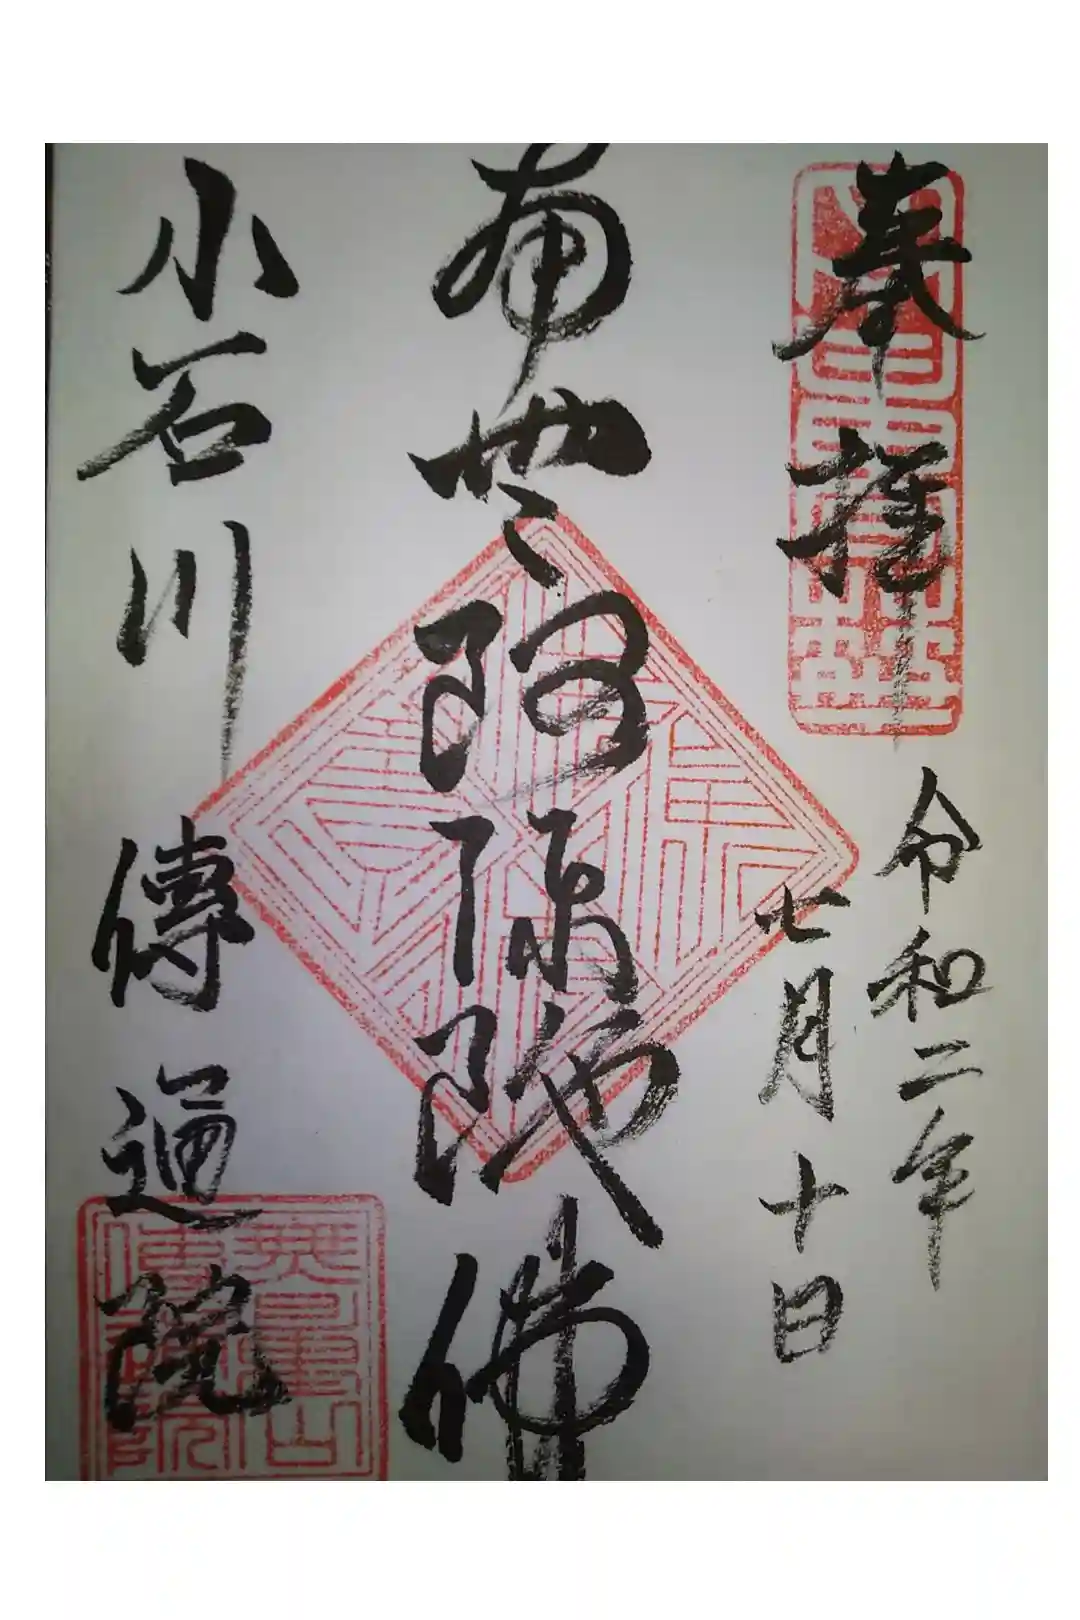 奉拝
令和二年
七月十日
南無阿彌陀佛
小石川
傳通院
無量山
傳通院